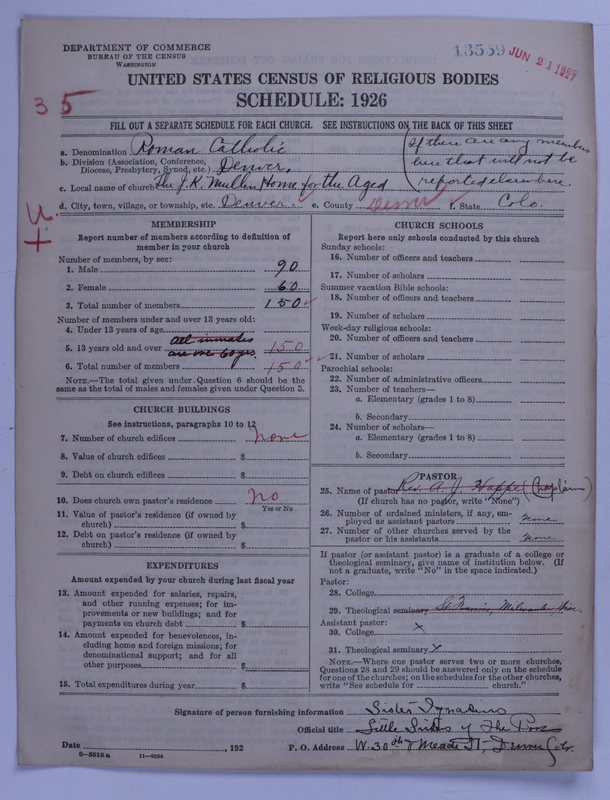 DEPARTMENT OF COMMERCE
BUREAU OF THE CENSUS
WASHINGTON
13559 JUN 21 1927
UNITED STATES CENSUS OF RELIGIOUS BODIES
SCHEDULE: 1926
35
FILL OUT A SEPARATE SCHEDULE FOR EACH CHURCH. SEE INSTRUCTIONS ON THE BACK OF THIS SHEET
a. Denomination Roman Catholic
b. Division (Association, Conference, Diocese, Presbytery, Synod, etc.) Denver.
c. Local name of church The J.K. Mullen Home for the Aged
(If there are any members
here that will not be
reported elsewhere.
d. City, town, village, or township, etc. Denver. e. County Denver f. State Colo.
U.
+
MEMBERSHIP
Report number of members according to definition of
member in your church
Number of members, by sex:
1. Male 90
2. Female 60
3. Total number of members 150
Number of members under and over 13 years old:
4. Under 13 years of age
All inmates
5. 13 years old and over are over 60 yrs. 150
6. Total number of members 150
NOTE.—The total given under Question 6 should be the
same as the total of males and females given under Question 3.
CHURCH BUILDINGS
See instructions, paragraphs 10 to 12
7. Number of church edifices none
8. Value of church edifices $
9. Debt on church edifices $
10. Does church own pastor's residence no
Yes or No
11. Value of pastor's residence (if owned by
church) $
12. Debt on pastor's residence (if owned by
church) $
EXPENDITURES
Amount expended by your church during last fiscal year
13. Amount expended for salaries, repairs,
and other running expenses; for im-
provements or new buildings; and for
payments on church debt $
14. Amount expended for benevolences, in-
cluding home and foreign missions; for
denominational support; and for all
other purposes $
15. Total expenditures during year $
CHURCH SCHOOLS
Report here only schools conducted by this church
Sunday schools:
16. Number of officers and teachers
17. Number of scholars
Summer vacation Bible schools:
18. Number of officers and teachers
19. Number of scholars
Week-day religious schools:
20. Number of officers and teachers
21. Number of scholars
Parochial schools:
22. Number of administrative officers
23. Number of teachers—
a. Elementary (grades 1 to 8)
b. Secondary
24. Number of scholars—
a. Elementary (grades 1 to 8)
b. Secondary
PASTOR
25. Name of pastor Rev. A. J. Happe (Chaplain)
(If church has no pastor, write "None")
26. Number of ordained ministers, if any, em-
ployed as assistant pastors none
27. Number of other churches served by the
pastor or his assistants none
If pastor (or assistant pastor) is a graduate of a college or
theological seminary, give name of institution below. (If
not a graduate, write "No" in the space indicated.)
Pastor:
28. College
29. Theological seminary St. Francis, Milwaukee Wisc.
Assistant pastor:
30. College x
31. Theological seminary x
NOTE.—Where one pastor serves two or more churches,
Questions 28 and 29 should be answered only on the schedule
for one of the churches; on the schedules for the other churches,
write "See schedule for church."
Signature of person furnishing information Sister Ignatius
Official title Little Sisters of the Poor
Date , 192 P. O. Address W. 30th & Meade St, Denver Colo.
8—5518a 11—9054